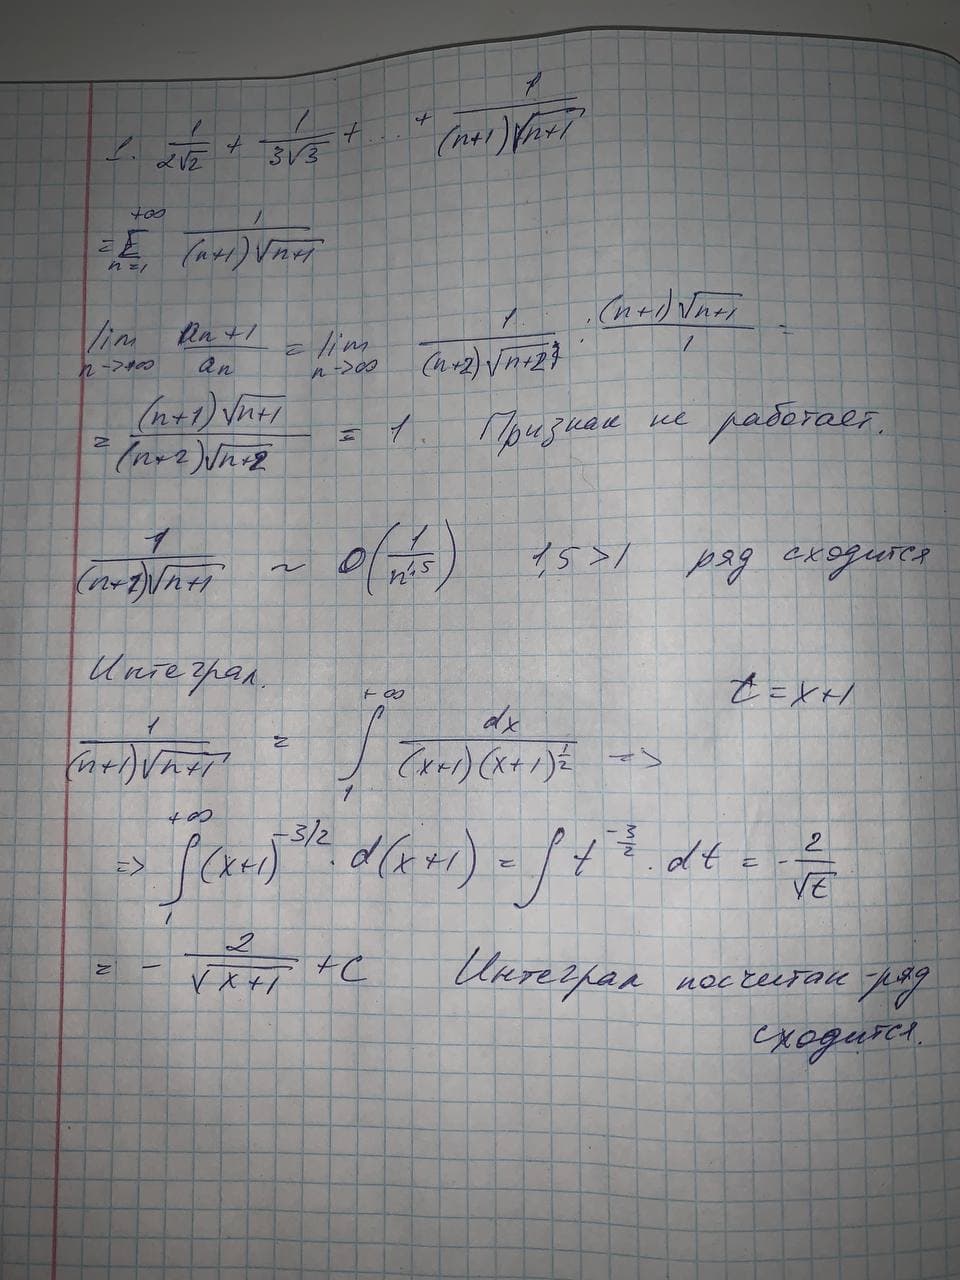 1. 1/(2√2) + 1/(3√3) + ... + 1/((n+1)√(n+1))
= Σ_{n=1}^{+∞} 1/((n+1)√(n+1))
lim_{n→+∞} a_{n+1}/a_n = lim_{n→∞} 1/((n+2)√(n+2)) · (n+1)√(n+1)/1 =
= (n+1)√(n+1)/((n+2)√(n+2)) = 1. Признак не работает.
1/((n+1)√(n+1)) ~ O(1/n^{1,5}) 1,5>1 ряд сходится
Интеграл. t = x+1
1/((n+1)√(n+1)) = ∫_1^{+∞} dx/((x+1)(x+1)^{1/2}) =>
=> ∫_1^{+∞} (x+1)^{-3/2} · d(x+1) = ∫ t^{-3/2} · dt = - 2/√t
= - 2/√(x+1) + C Интеграл посчитан - ряд
сходится.